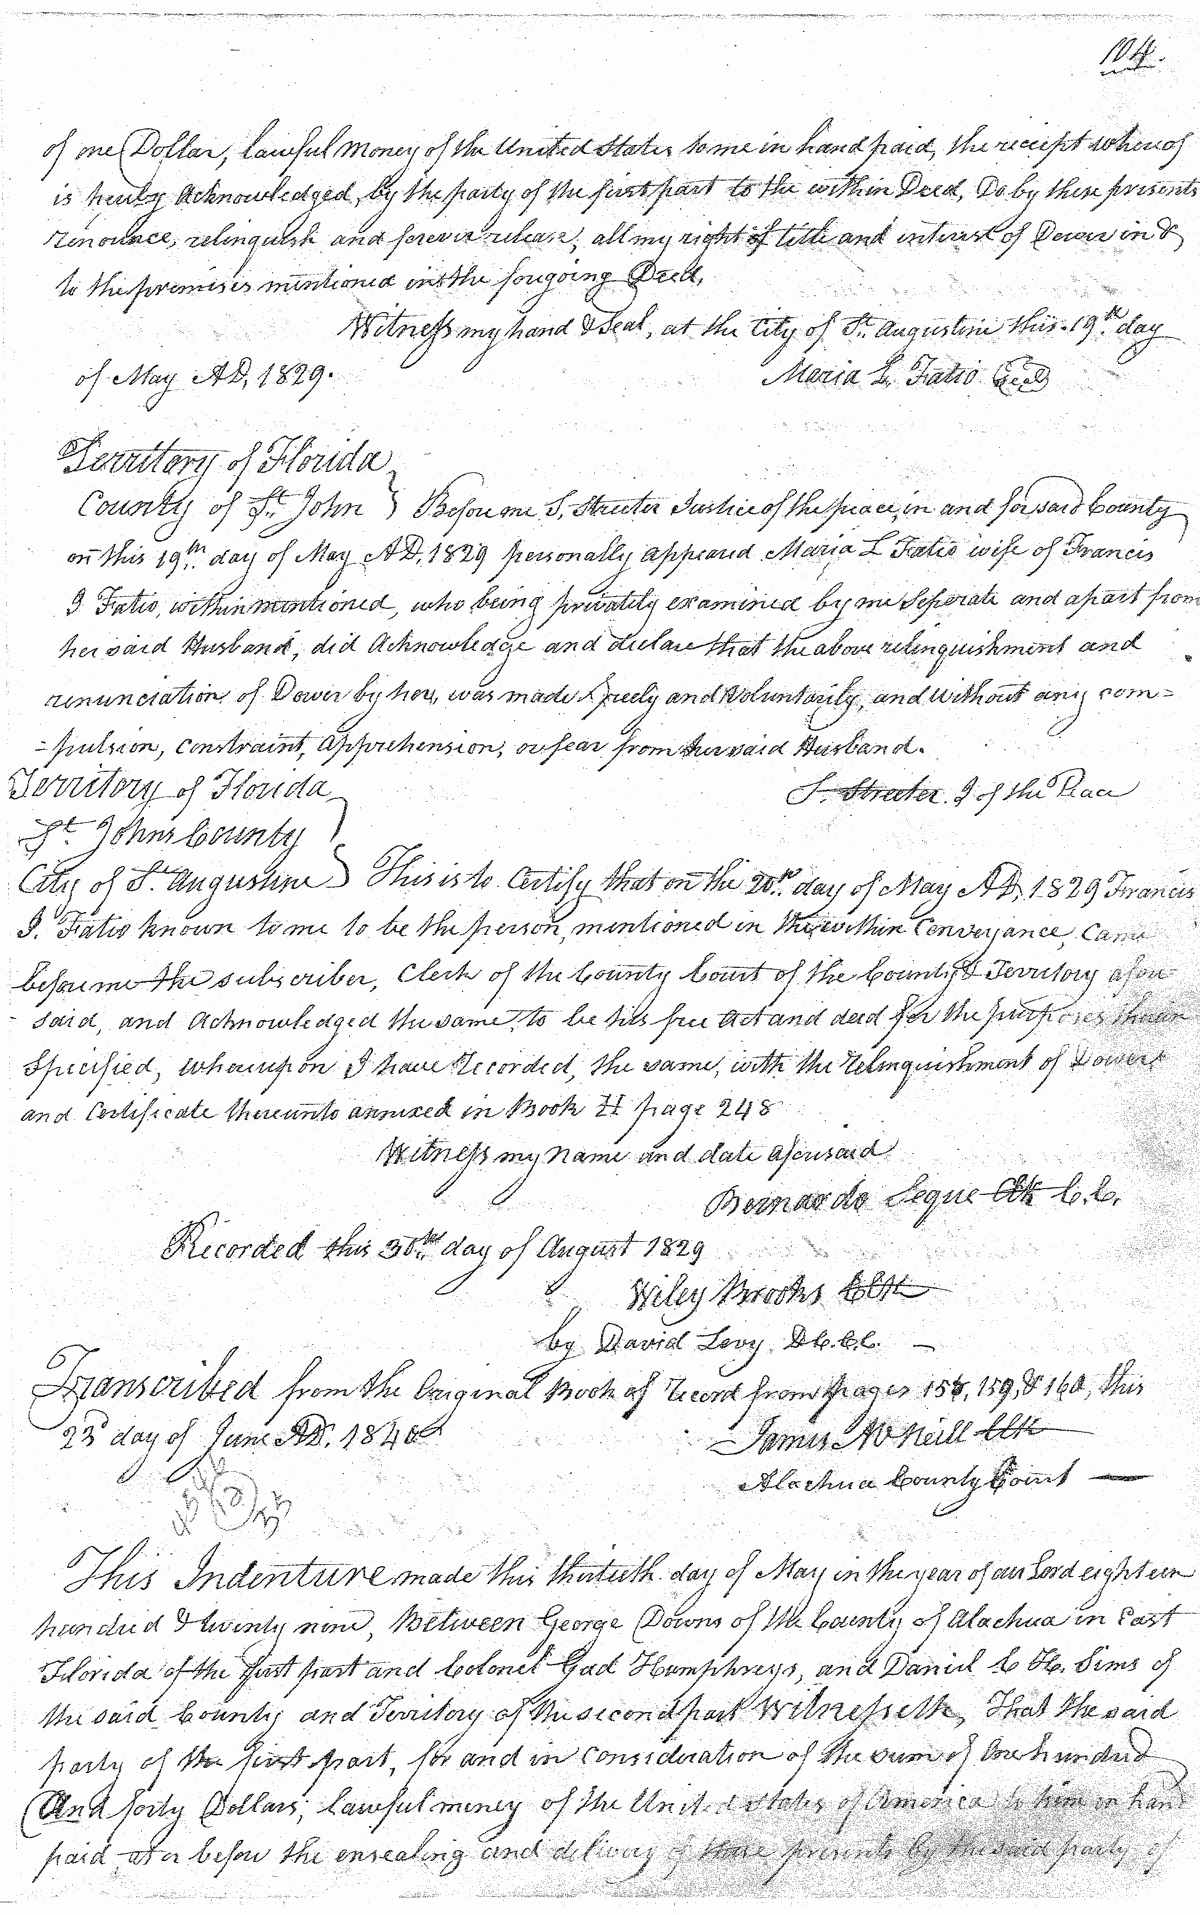 104.
of one Dollar, lawful money of the United States to me in hand paid, the receipt where of
is hereby Acknowledged, by the party of the first part to the within Deed, Do by these presents
renounce, relinquish and forever release, all my right of title and interest of Dower in &
to the premises mentioned in the forgoing Deed,
Witness my hand & Seal, at the City of St. Augustine this 19th day
of May AD, 1829.
Maria L. Fatio Seal
Territory of Florida
County of St. John } Before me S. Streeter Justice of the peace, in and for said County
on this 19th day of May AD, 1829 personally appeared Maria L Fatio wife of Francis
J Fatio, within mentioned, who being privately examined by me Seperate and apart from
her said Husband, did Acknowledge and declare that the above relinquishment and
renunciation of Dower by her, was made freely and Voluntarily, and without any com=
=pulsion, constraint, apprehension, or fear from her said Husband.
S. Streeter. J of the Peace
Territory of Florida
St. Johns County
City of St. Augustine } This is to Certify that on the 20th day of May AD, 1829 Francis
J. Fatio known to me to be the person, mentioned in the within Conveyance, Came
before me the subscriber, Clerk of the County Court of the County & Territory afore
said, and Acknowledged the same, to be his free Act and deed for the purposes therein
Specified, whereupon I have recorded, the same, with the relinquishment of Dower
and Certificate thereunto annexed in Book H page 248
Witness my name and date aforesaid
Bernardo Segue Clk C.C.
Recorded this 30th day of August 1829
Wiley Brooks Clk
by David Levy D.C.C.C.
Transcribed from the Original Book of Record from pages 158, 159, & 160, this
23d day of June AD. 1840
James McNeill Clk
Alachua County Court
This Indenture made this thirtieth day of May in the year of our Lord eighteen
hundred & twenty nine, Between George Downs of the County of Alachua in East
Florida of the first part and Colonel Gad Humphreys, and Daniel C H. Sims of
the said County and Territory of the second part Witnesseth, That the said
party of the first part, for and in consideration of the sum of One hundred
And forty Dollars, lawful money of the United States of America to him in hand
paid at or before the ensealing and delivery of these presents by the said party of